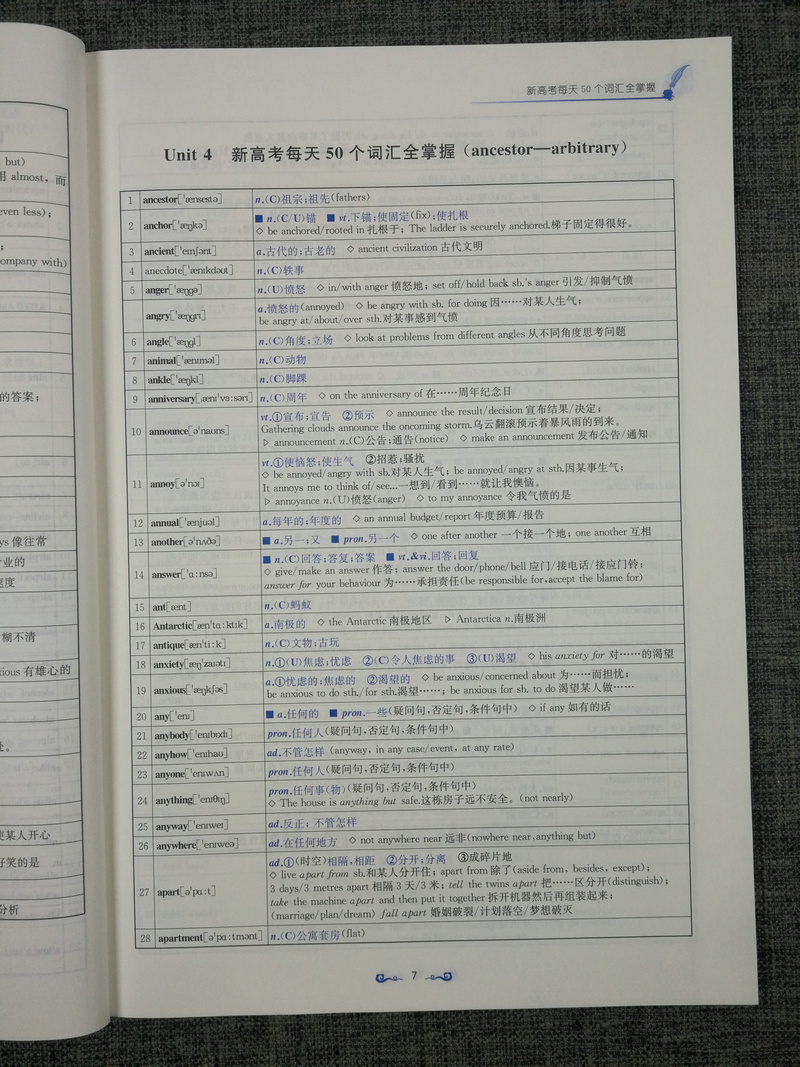 but)
用 almost，而
even less)；
；
ompany with)
的答案；
ys 像往常
业的
速度
糊不清
cious 有雄心的
处。
使某人开心
好笑的是
分析
新高考每天 50 个词汇全掌握
Unit 4 新高考每天 50 个词汇全掌握（ancestor—arbitrary）
1 ancestor[ˈænsestə] n.(C)祖宗；祖先(fathers)
2 anchor[ˈæŋkə] ■ n.(C/U)锚 ■ vt.下锚；使固定(fix)；使扎根
◇ be anchored/rooted in 扎根于；The ladder is securely anchored.梯子固定得很好。
3 ancient[ˈeɪnʃənt] a.古代的；古老的 ◇ ancient civilization 古代文明
4 anecdote[ˈænɪkdəʊt] n.(C)轶事
5 anger[ˈæŋgə] n.(U)愤怒 ◇ in/with anger 愤怒地；set off/hold back sb.'s anger 引发/抑制气愤
angry[ˈæŋgri] a.愤怒的(annoyed) ◇ be angry with sb. for doing 因……对某人生气；
be angry at/about/over sth.对某事感到气愤
6 angle[ˈæŋgl] n.(C)角度；立场 ◇ look at problems from different angles 从不同角度思考问题
7 animal[ˈænɪməl] n.(C)动物
8 ankle[ˈæŋkl] n.(C)脚踝
9 anniversary[ˌænɪˈvɜːsəri] n.(C)周年 ◇ on the anniversary of 在……周年纪念日
10 announce[əˈnaʊns] vt.①宣布；宣告 ②预示 ◇ announce the result/decision 宣布结果/决定；
Gathering clouds announce the oncoming storm.乌云翻滚预示着暴风雨的到来。
▷ announcement n.(C)公告；通告(notice) ◇ make an announcement 发布公告/通知
11 annoy[əˈnɔɪ] vt.①使恼怒；使生气 ②招惹；骚扰
◇ be annoyed/angry with sb.对某人生气；be annoyed/angry at sth.因某事生气；
It annoys me to think of/see...一想到/看到……就让我懊恼。
▷ annoyance n.(U)愤怒(anger) ◇ to my annoyance 令我气愤的是
12 annual[ˈænjuəl] a.每年的；年度的 ◇ an annual budget/report 年度预算/报告
13 another[əˈnʌðə] ■ a.另一；又 ■ pron.另一个 ◇ one after another 一个接一个地；one another 互相
14 answer[ˈɑːnsə] ■ n.(C)回答；答复；答案 ■ vt.&vi.回答；回复
◇ give/make an answer 作答；answer the door/phone/bell 应门/接电话/接应门铃；
answer for your behaviour 为……承担责任(be responsible for,accept the blame for)
15 ant[ænt] n.(C)蚂蚁
16 Antarctic[ænˈtɑːktɪk] a.南极的 ◇ the Antarctic 南极地区 ▷ Antarctica n.南极洲
17 antique[ænˈtiːk] n.(C)文物；古玩
18 anxiety[æŋˈzaɪəti] n.①(U)焦虑；忧虑 ②(C)令人焦虑的事 ③(U)渴望 ◇ his anxiety for 对……的渴望
19 anxious[ˈæŋkʃəs] a.①忧虑的；焦虑的 ②渴望的 ◇ be anxious/concerned about 为……而担忧；
be anxious to do sth./for sth.渴望……；be anxious for sb. to do 渴望某人做……
20 any[ˈenɪ] ■ a.任何的 ■ pron.一些(疑问句,否定句,条件句中) ◇ if any 如有的话
21 anybody[ˈenɪbɒdɪ] pron.任何人(疑问句,否定句,条件句中)
22 anyhow[ˈenɪhaʊ] ad.不管怎样 (anyway, in any case/event, at any rate)
23 anyone[ˈenɪwʌn] pron.任何人(疑问句,否定句,条件句中)
24 anything[ˈenɪθɪŋ] pron.任何事(物)(疑问句,否定句,条件句中)
◇ The house is anything but safe.这栋房子远不安全。(not nearly)
25 anyway[ˈenɪweɪ] ad.反正；不管怎样
26 anywhere[ˈenɪweə] ad.在任何地方 ◇ not anywhere near 远非(nowhere near,anything but)
27 apart[əˈpɑːt] ad.①(时空)相隔,相距 ②分开；分离 ③成碎片地
◇ live apart from sb.和某人分开住；apart from 除了(aside from, besides, except)；
3 days/3 metres apart 相隔 3 天/3 米；tell the twins apart 把……区分开(distinguish)；
take the machine apart and then put it together 拆开机器然后再组装起来；
(marriage/plan/dream) fall apart 婚姻破裂/计划落空/梦想破灭
28 apartment[əˈpɑːtmənt] n.(C)公寓套房(flat)
7